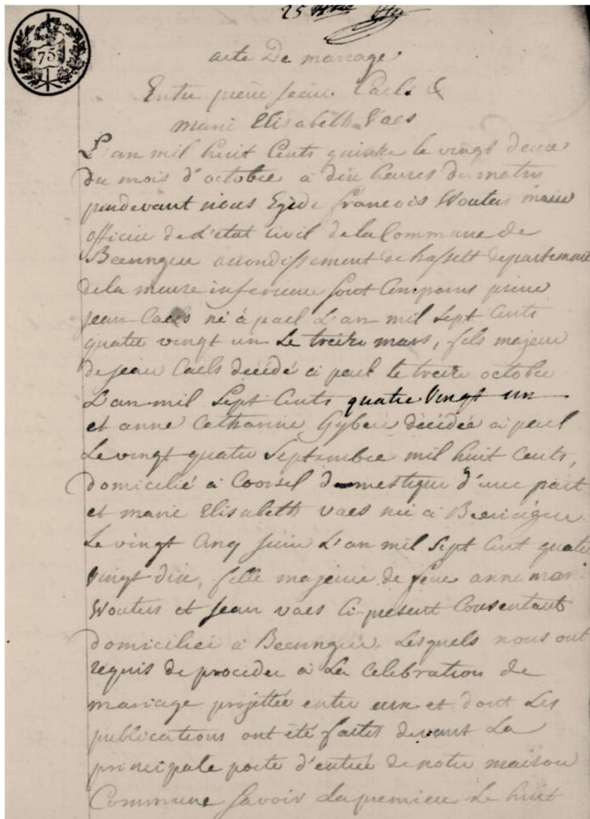 75
acte De mariage
Entre pierre Jean Caels &
marie Elisabeth Vaes
L'an mil huit Cents quinze le vingt deux
du mois d'octobre a dix heures du matin
pardevant nous Egide francois Wouters maire
officier de L'etat Civil de la Commune de
Beeringen arrondissement de hasselt departement
de la meuse inferieure sont Comparus pierre
jean Caels né à pael L'an mil Sept Cents
quatre vingt un Le treize mars, fils majeur
de jean Caels décédé à pael le treize octobre
L'an mil Sept Cents quatre Vingt un
et anne Catharine Gyben décédée à pael
Le vingt quatre Septembre mil huit Cents,
domicilié à Coorsel domestique d'une part
et marie Elisabeth vaes née à Beeringen
Le vingt Cinq juin L'an mil Sept Cent quatre
Vingt dix, fille majeure de feue anne marie
Wouters et jean vaes Ci present Consentant
domiciliée à Beeringen, Lesquels nous ont
requis de proceder à La Celebration de
mariage projettée entre eux et dont Les
publications ont été faites devant La
principale porte d'entrée de notre maison
Commune Savoir La premiere Le huit